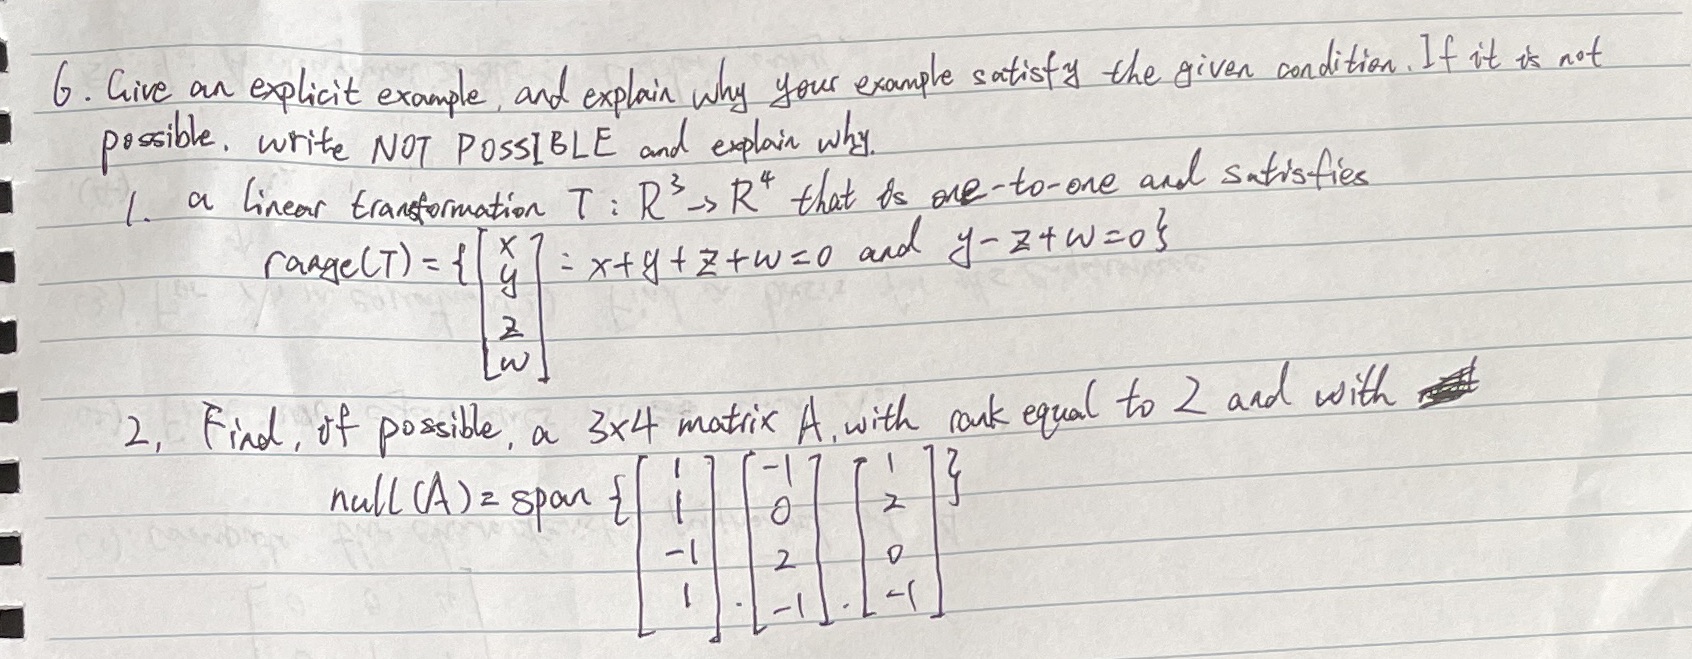 6. Give an explicit example, and explain why your example satisfy the given condition. If it is not
possible. write NOT POSSIBLE and explain why.
1. a linear transformation T : R³ → R⁴ that is one-to-one and satisfies
range(T) = { [x y z w] : x+y+z+w=0 and y-z+w=0 }
2, Find, if possible, a 3x4 matrix A, with rank equal to 2 and with
null(A) = span { [1 1 -1 1] . [-1 0 2 -1] . [1 2 0 -1] }